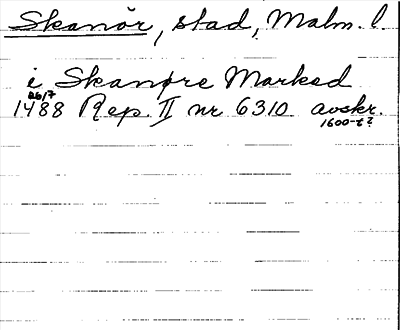 Skanör, stad, Malm. l.
i Skanøre Marked
26/7
1488 Rep. II nr 6310 avskr.
1600-t?